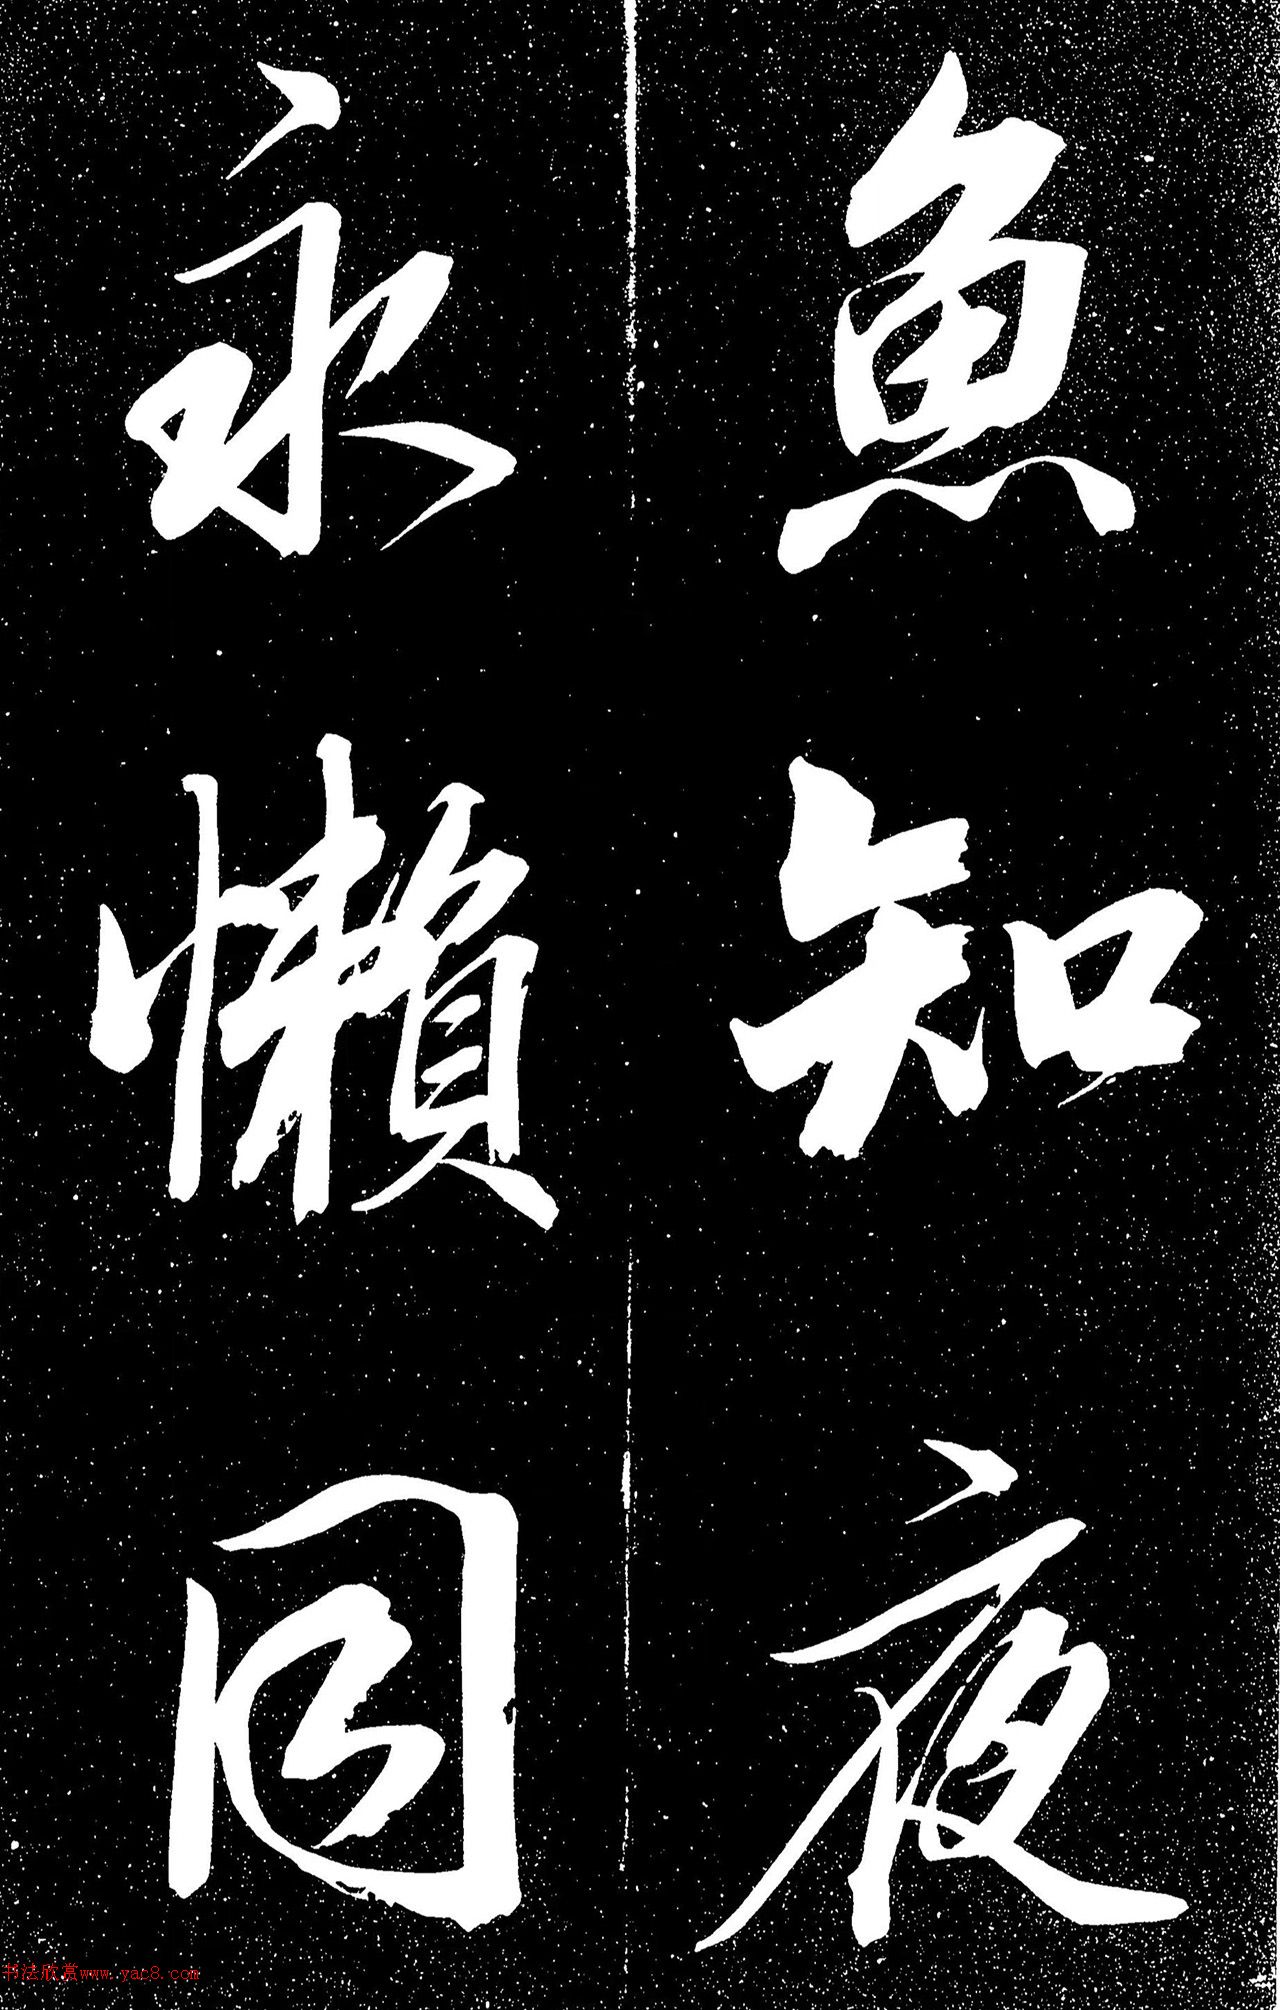 魚知夜
永懶同
书法欣赏www.yac8.com